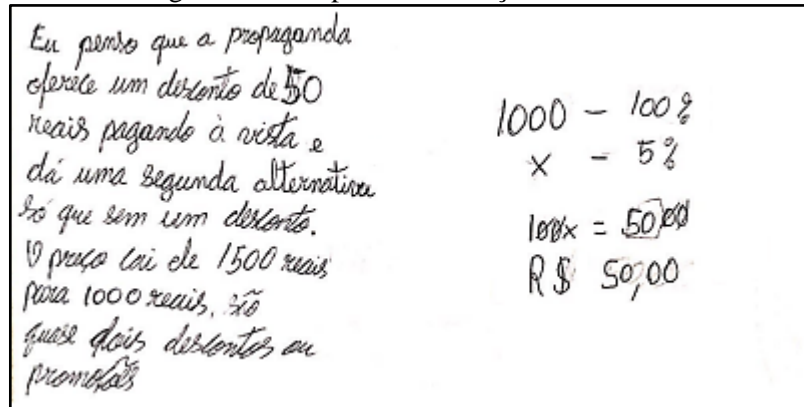 Eu penso que a propaganda
oferece um desconto de 50
reais pagando à vista e
dá uma segunda alternativa
só que sem um desconto.
O preço cai de 1500 reais
para 1000 reais, são
quase dois descontos ou
promoções
1000 - 100%
x - 5%
100x = 5000
R$ 50,00